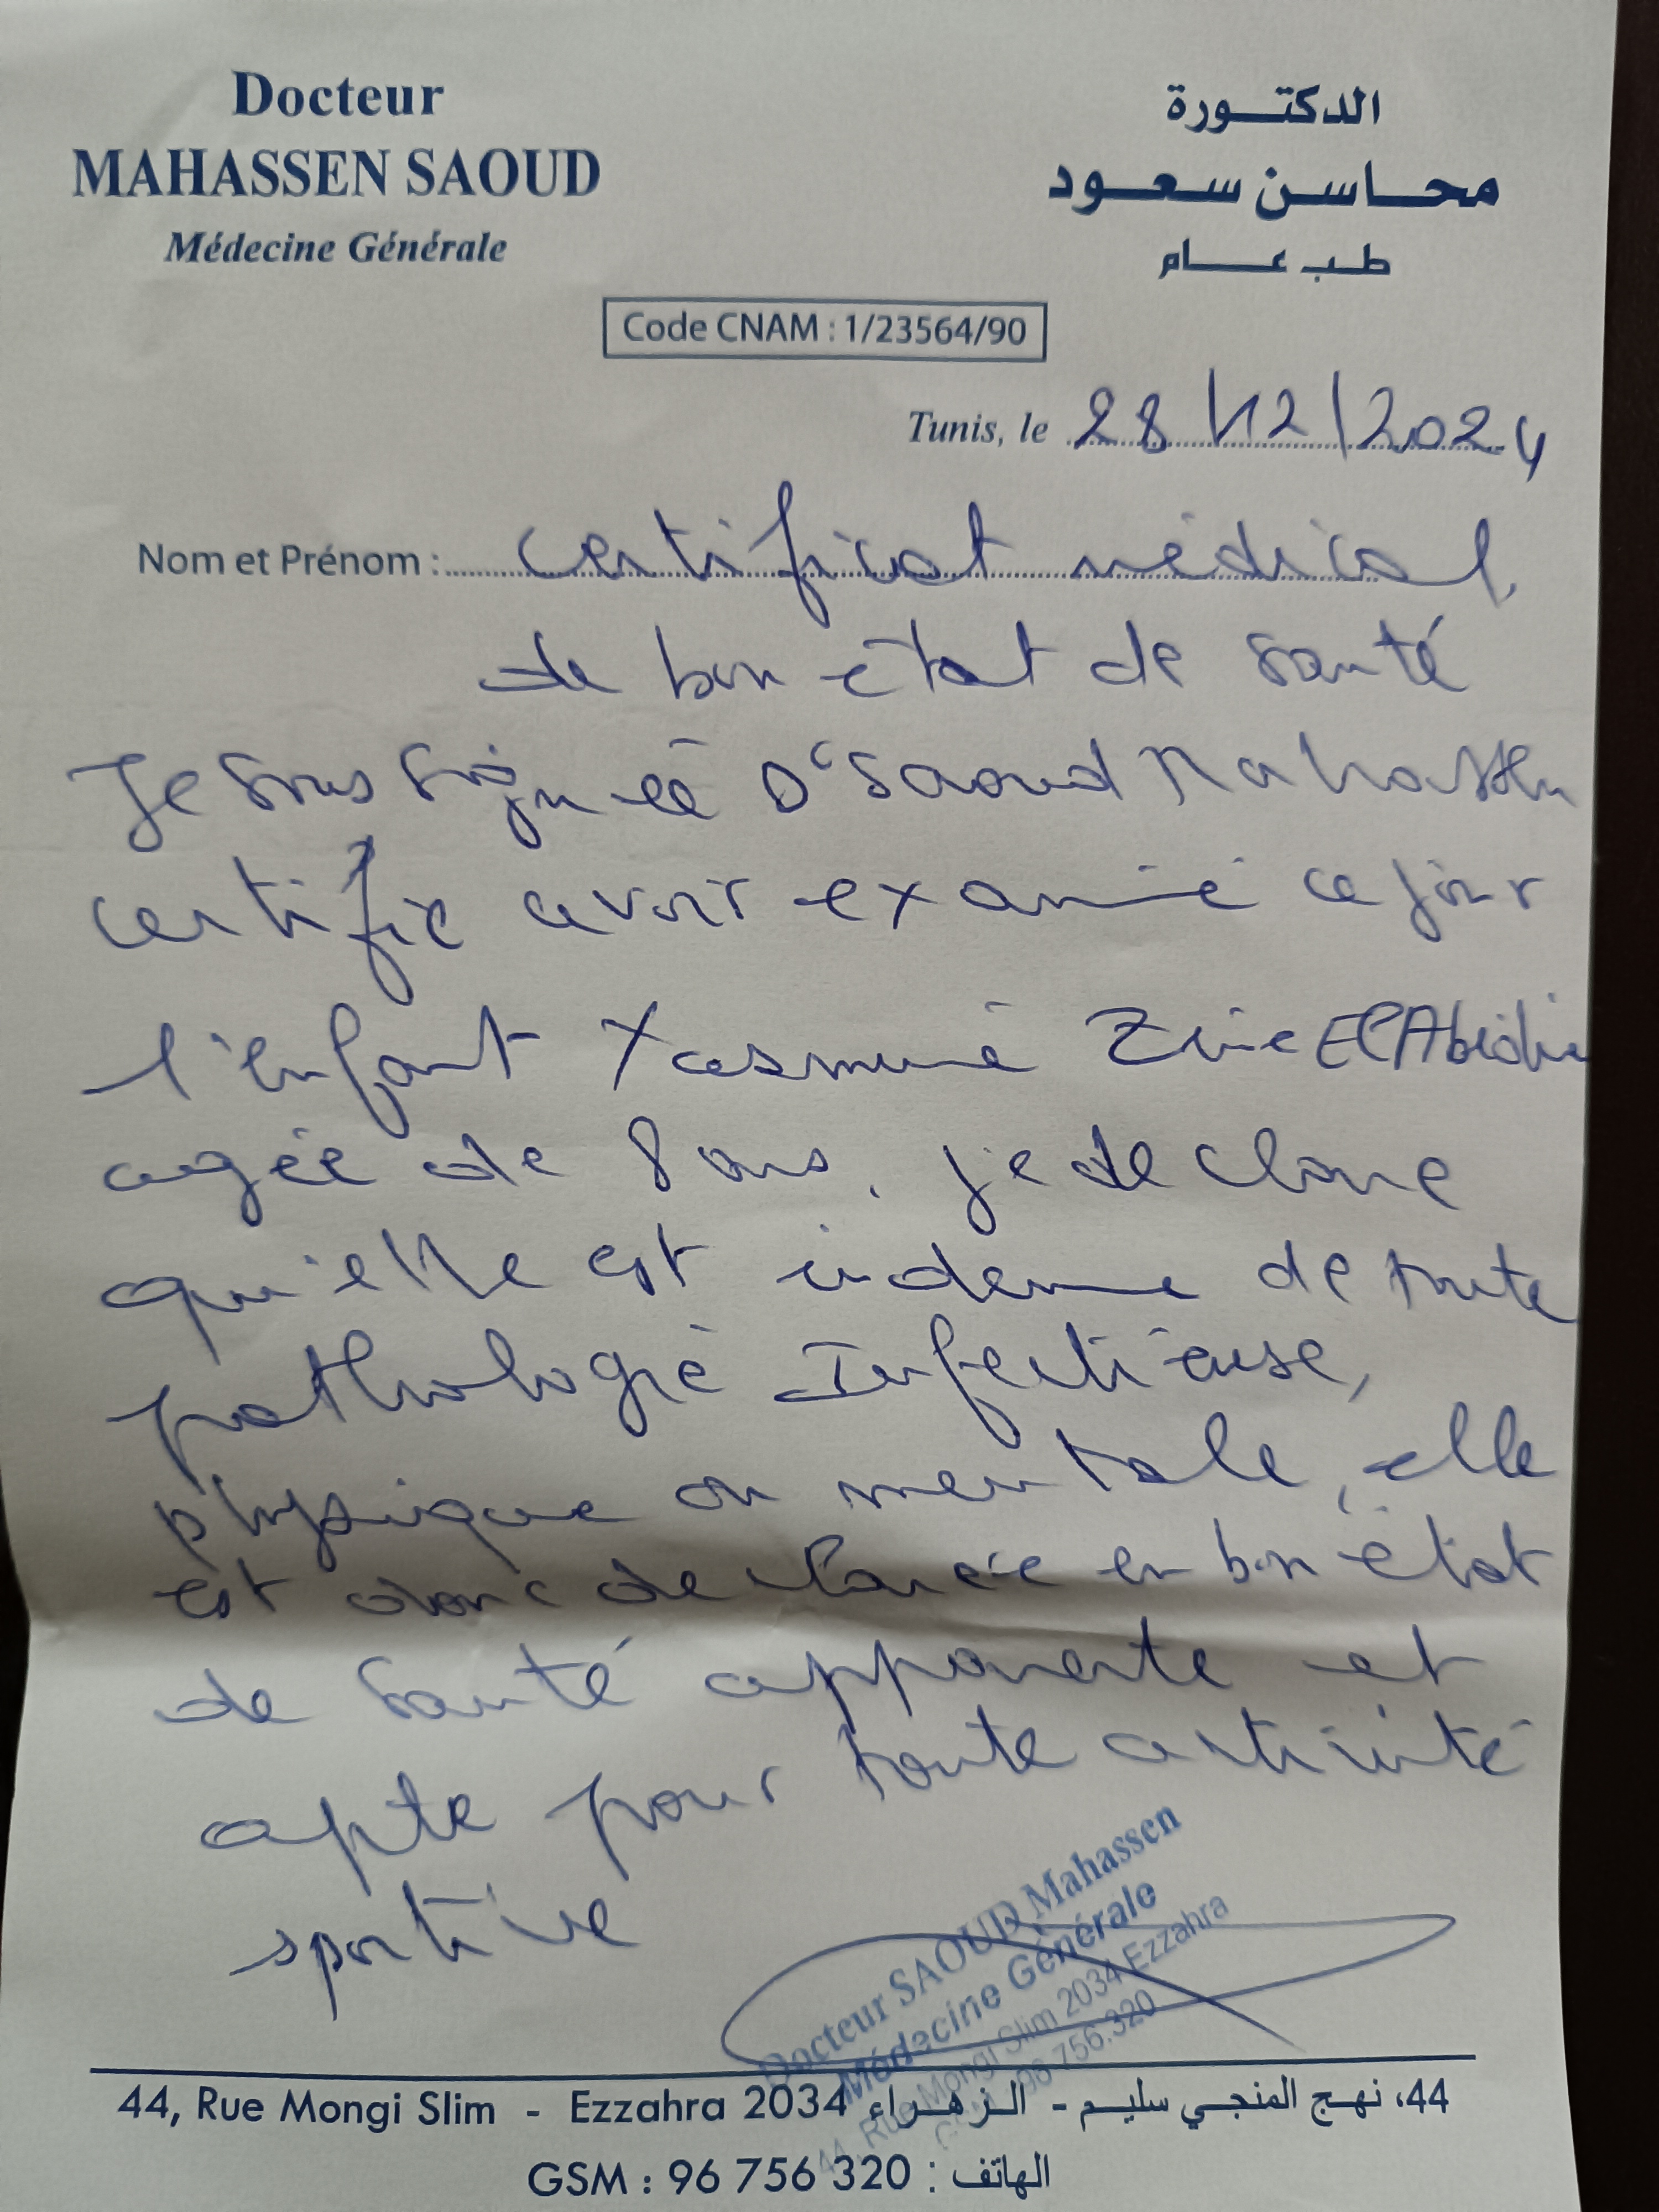 Docteur
MAHASSEN SAOUD
Médecine Générale
الدكتورة
محاسن سعود
طب عام
Code CNAM : 1/23564/90
Tunis, le 28/12/2024
Nom et Prénom : Certificat médical
de bon état de santé
Je soussignée Dr Saoud Mahassen
certifie avoir examiné ce jour
l'enfant Yasmine Zine El Abidine
agée de 8 ans, je declare
qu'elle est indemne de toute
pathologie Infectieuse,
physique ou mentale, elle
est donc declarée en bon état
de santé apparente et
apte pour toute activité
sportive
Docteur SAOUD Mahassen
Médecine Générale
44, Rue Mongi Slim 2034 Ezzahra
96 756.320
44, Rue Mongi Slim - Ezzahra 2034 44، نهج المنجي سليم - الزهراء
GSM : 96 756 320 : الهاتف